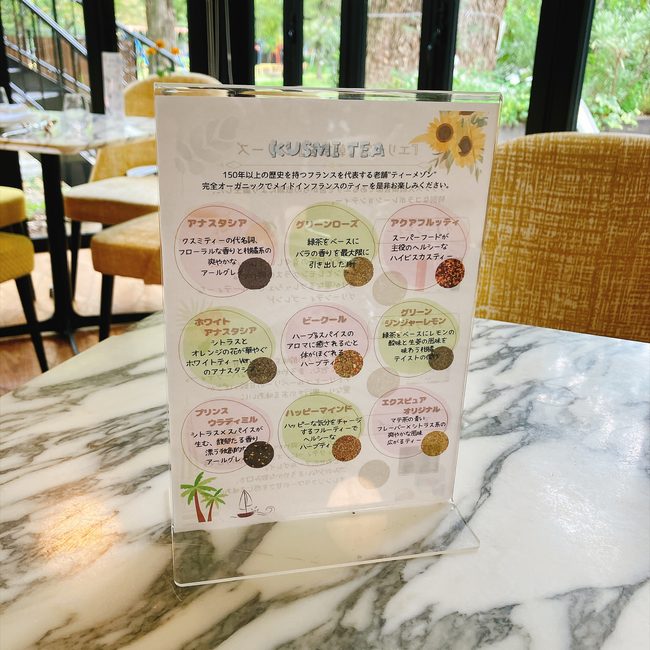 KUSMI TEA
150年以上の歴史を持つフランスを代表する老舗"ティーメゾン"
完全オーガニックでメイドインフランスのティーを是非お楽しみください。
アナスタシア
クスミティーの代名詞、
フローラルな香りと柑橘系の
爽やかな
アールグレ
グリーンローズ
緑茶をベースに
バラの香りを最大限に
引き出した
アクアフルッティ
スーパーフードが
主役のヘルシーな
ハイビスカスティー
ホワイト
アナスタシア
シトラスと
オレンジの花が華やぐ
ホワイトティーver.
のアナスタシ
ビークール
ハーブ&スパイスの
アロマに癒される心と
体がほぐれる
ハーブティ
グリーン
ジンジャーレモン
緑茶をベースにレモンの
酸味と生姜の風味を
味わう柑橘
テイストの
プリンス
ウラディミル
シトラス×スパイスが
生む、馥郁たる香り
漂う
アールグレ
ハッピーマインド
ハッピーな気分をチャージ
するフルーティーで
ヘルシーな
ハーブティ
エクスピュア
オリジナル
マテ茶の青い
フレーバー×シトラス系の
爽やかな風味
広がるティー